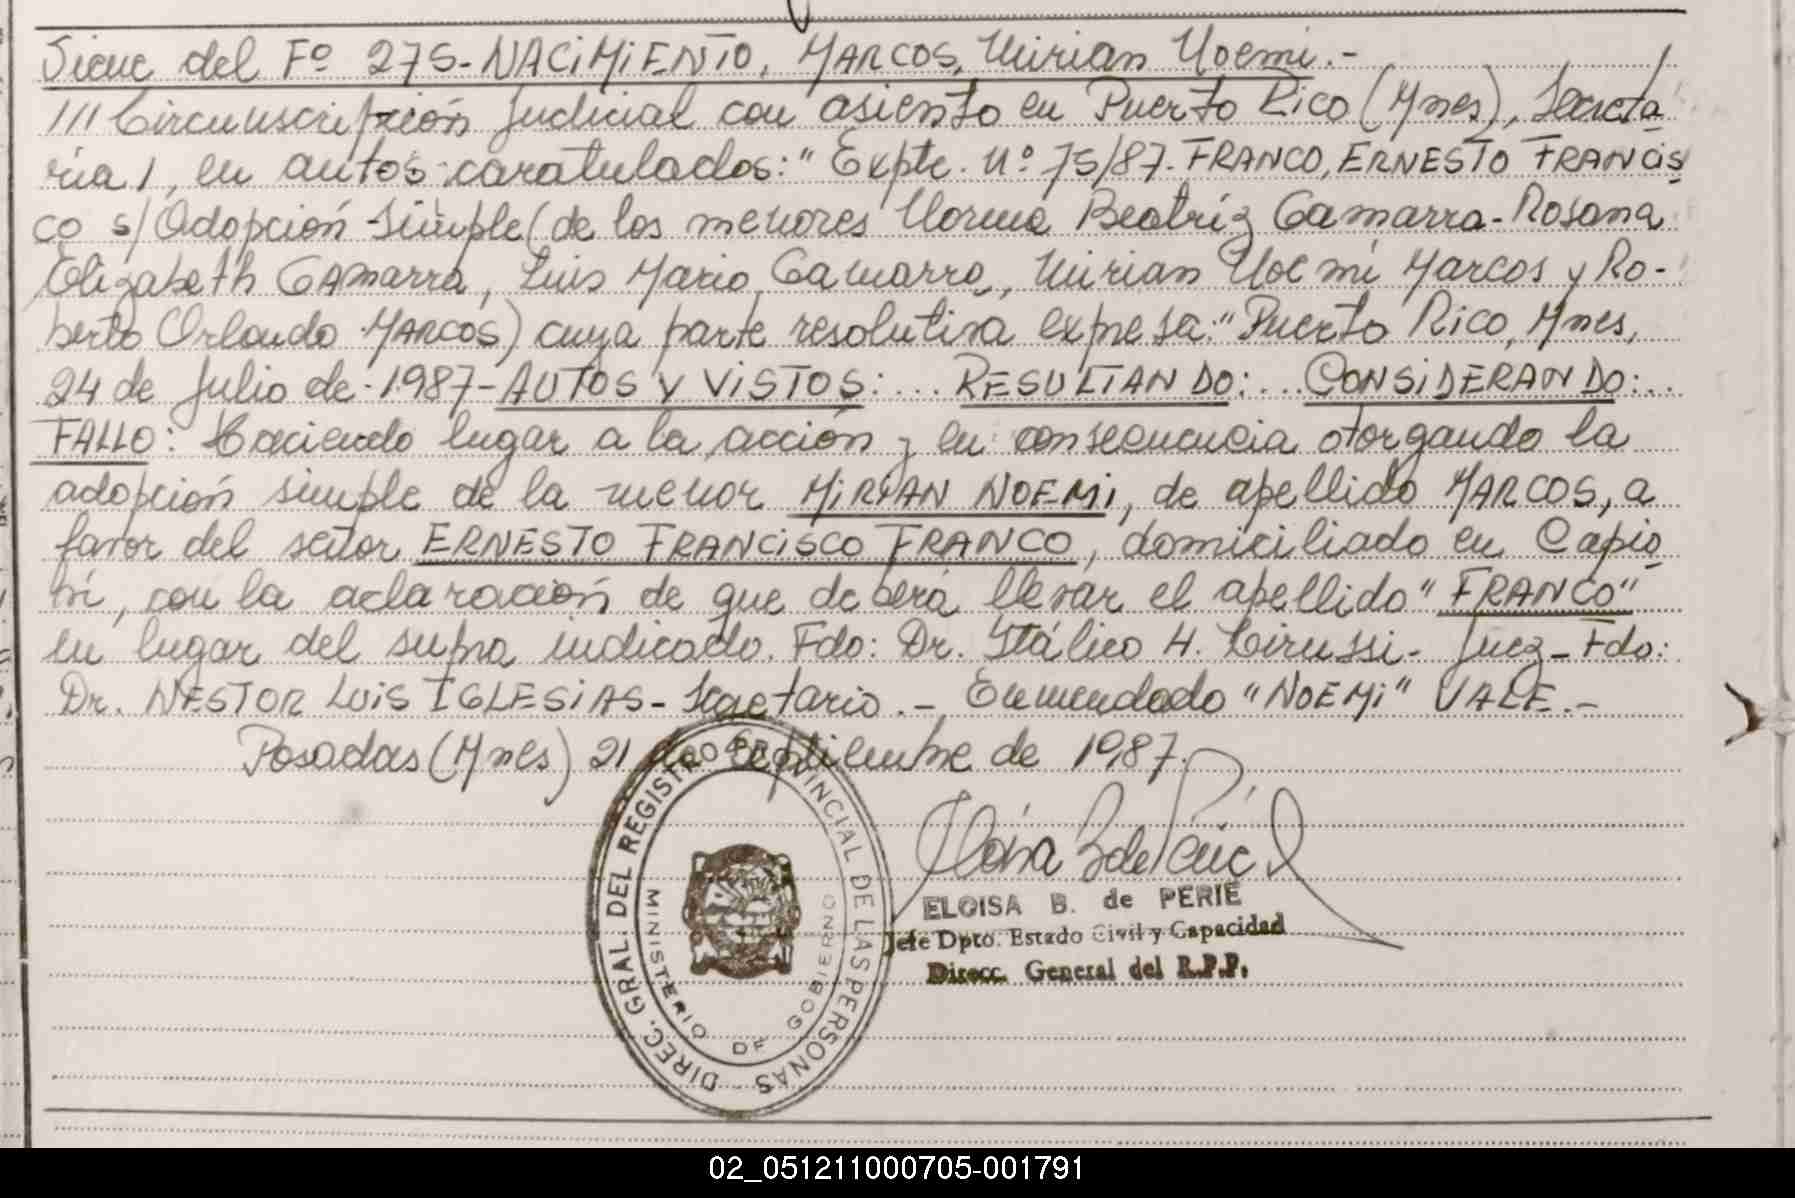 Sigue del Fº 275-NACIMIENTO, MARCOS, Mirian Noemi.-
/// Circunscripción Judicial con asiento en Puerto Rico (Mnes), Secreta
ria 1, en autos caratulados: "Expte. Nº 75/87. FRANCO, ERNESTO FRANCIS
CO s/ Adopción Simple (de los menores Norma Beatríz Gamarra-Rosana
Elizabeth GAMARRA, Luis Mario Gamarra, Mirian Noemí Marcos y Ro-
berto Orlando MARCOS) cuya parte resolutiva expresa: "Puerto Rico, Mnes,
24 de Julio de 1987-AUTOS Y VISTOS:... RESULTANDO:... CONSIDERANDO:..
FALLO: Haciendo lugar a la acción y en consecuencia otorgando la
adopción simple de la menor MIRIAN NOEMI, de apellido MARCOS, a
favor del señor ERNESTO FRANCISCO FRANCO, domiciliado en Capio
ví, con la aclaración de que deberá llevar el apellido "FRANCO"
en lugar del supra indicado. Fdo: Dr. Itálico H. Cirussi- Juez-Fdo:
Dr. NESTOR LUIS IGLESIAS-Secretario.- Enmendado "NOEMI" VALE.-
Posadas (Mnes) 21 de Septiembre de 1987.
DIREC. GRAL. DEL REGISTRO PROVINCIAL DE LAS PERSONAS
MINISTERIO DE GOBIERNO
ELOISA B. de PERIE
Jefe Dpto. Estado Civil y Capacidad
Direcc. General del R.P.P.
02_051211000705-001791